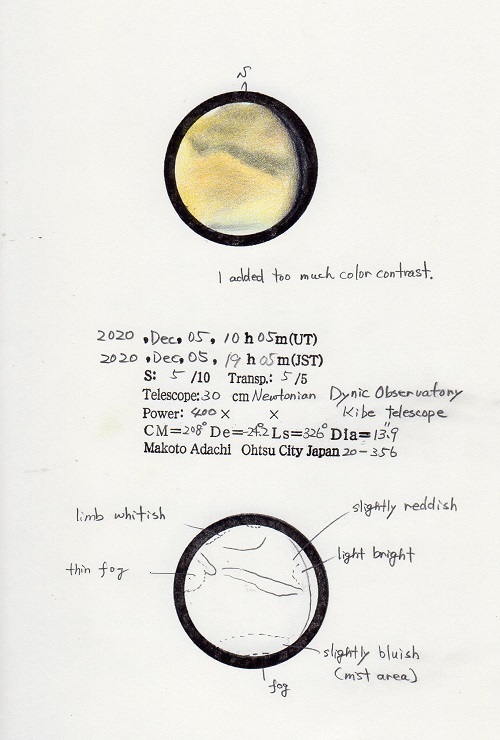 S
I added too much color contrast.
2020 , Dec, 05, 10 h 05m(UT)
2020 , Dec, 05, 19 h 05m(JST)
S: 5 /10 Transp.: 5 /5
Telescope: 30 cm Newtonian Dynic Observatory
Power: 400 × × Kibe telescope
CM=208° De=-24.2° Ls=326° Dia=13.9"
Makoto Adachi Ohtsu City Japan 20-356
limb whitish
slightly reddish
thin fog
light bright
slightly bluish
(mist area)
fog